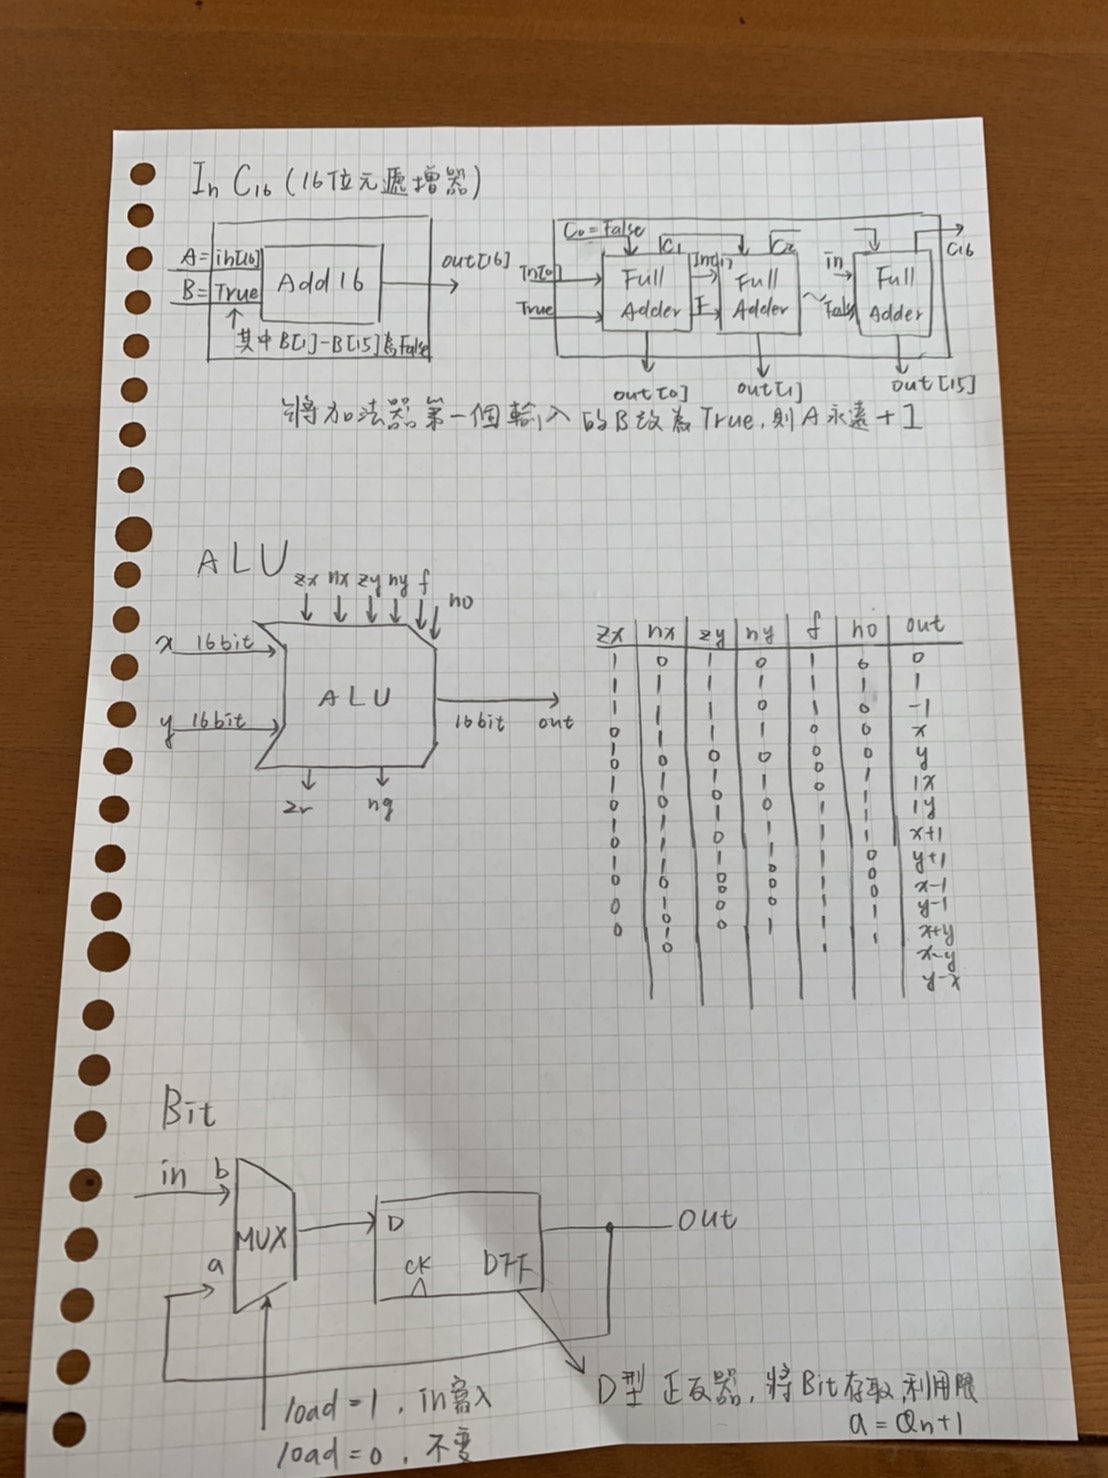 In C16 (16位元遞增器)
A= in[16]
B= True
Add16
out[16]
其中B[1]-B[15]為False
C0=False
C1
C2
C16
In[0]
True
Full Adder
In[1]
F
Full Adder
~
in
False
Full Adder
out[0]
out[1]
out[15]
將加法器第一個輸入的B改為True,則A永遠+1
ALU
zx nx zy ny f no
x 16bit
y 16bit
ALU
16bit out
zr ng
zx nx zy ny f no out
1 0 1 0 1 0 0
1 1 1 1 1 1 1
1 1 1 0 1 0 -1
0 1 1 0 0 x
1 0 0 0 0 0 y
0 1 1 1 0 1 !x
1 0 0 0 1 1 !y
0 1 1 1 1 1 x+1
1 1 0 1 1 0 y+1
0 0 1 0 1 0 x-1
0 1 0 0 1 0 y-1
0 0 0 1 1 1 x+y
0 1 1 x-y
y-x
Bit
in b
a
MUX
D
CK
DFF
out
load=1, in寫入
load=0, 不變
D型正反器,將Bit存取,利用
a=Qn+1